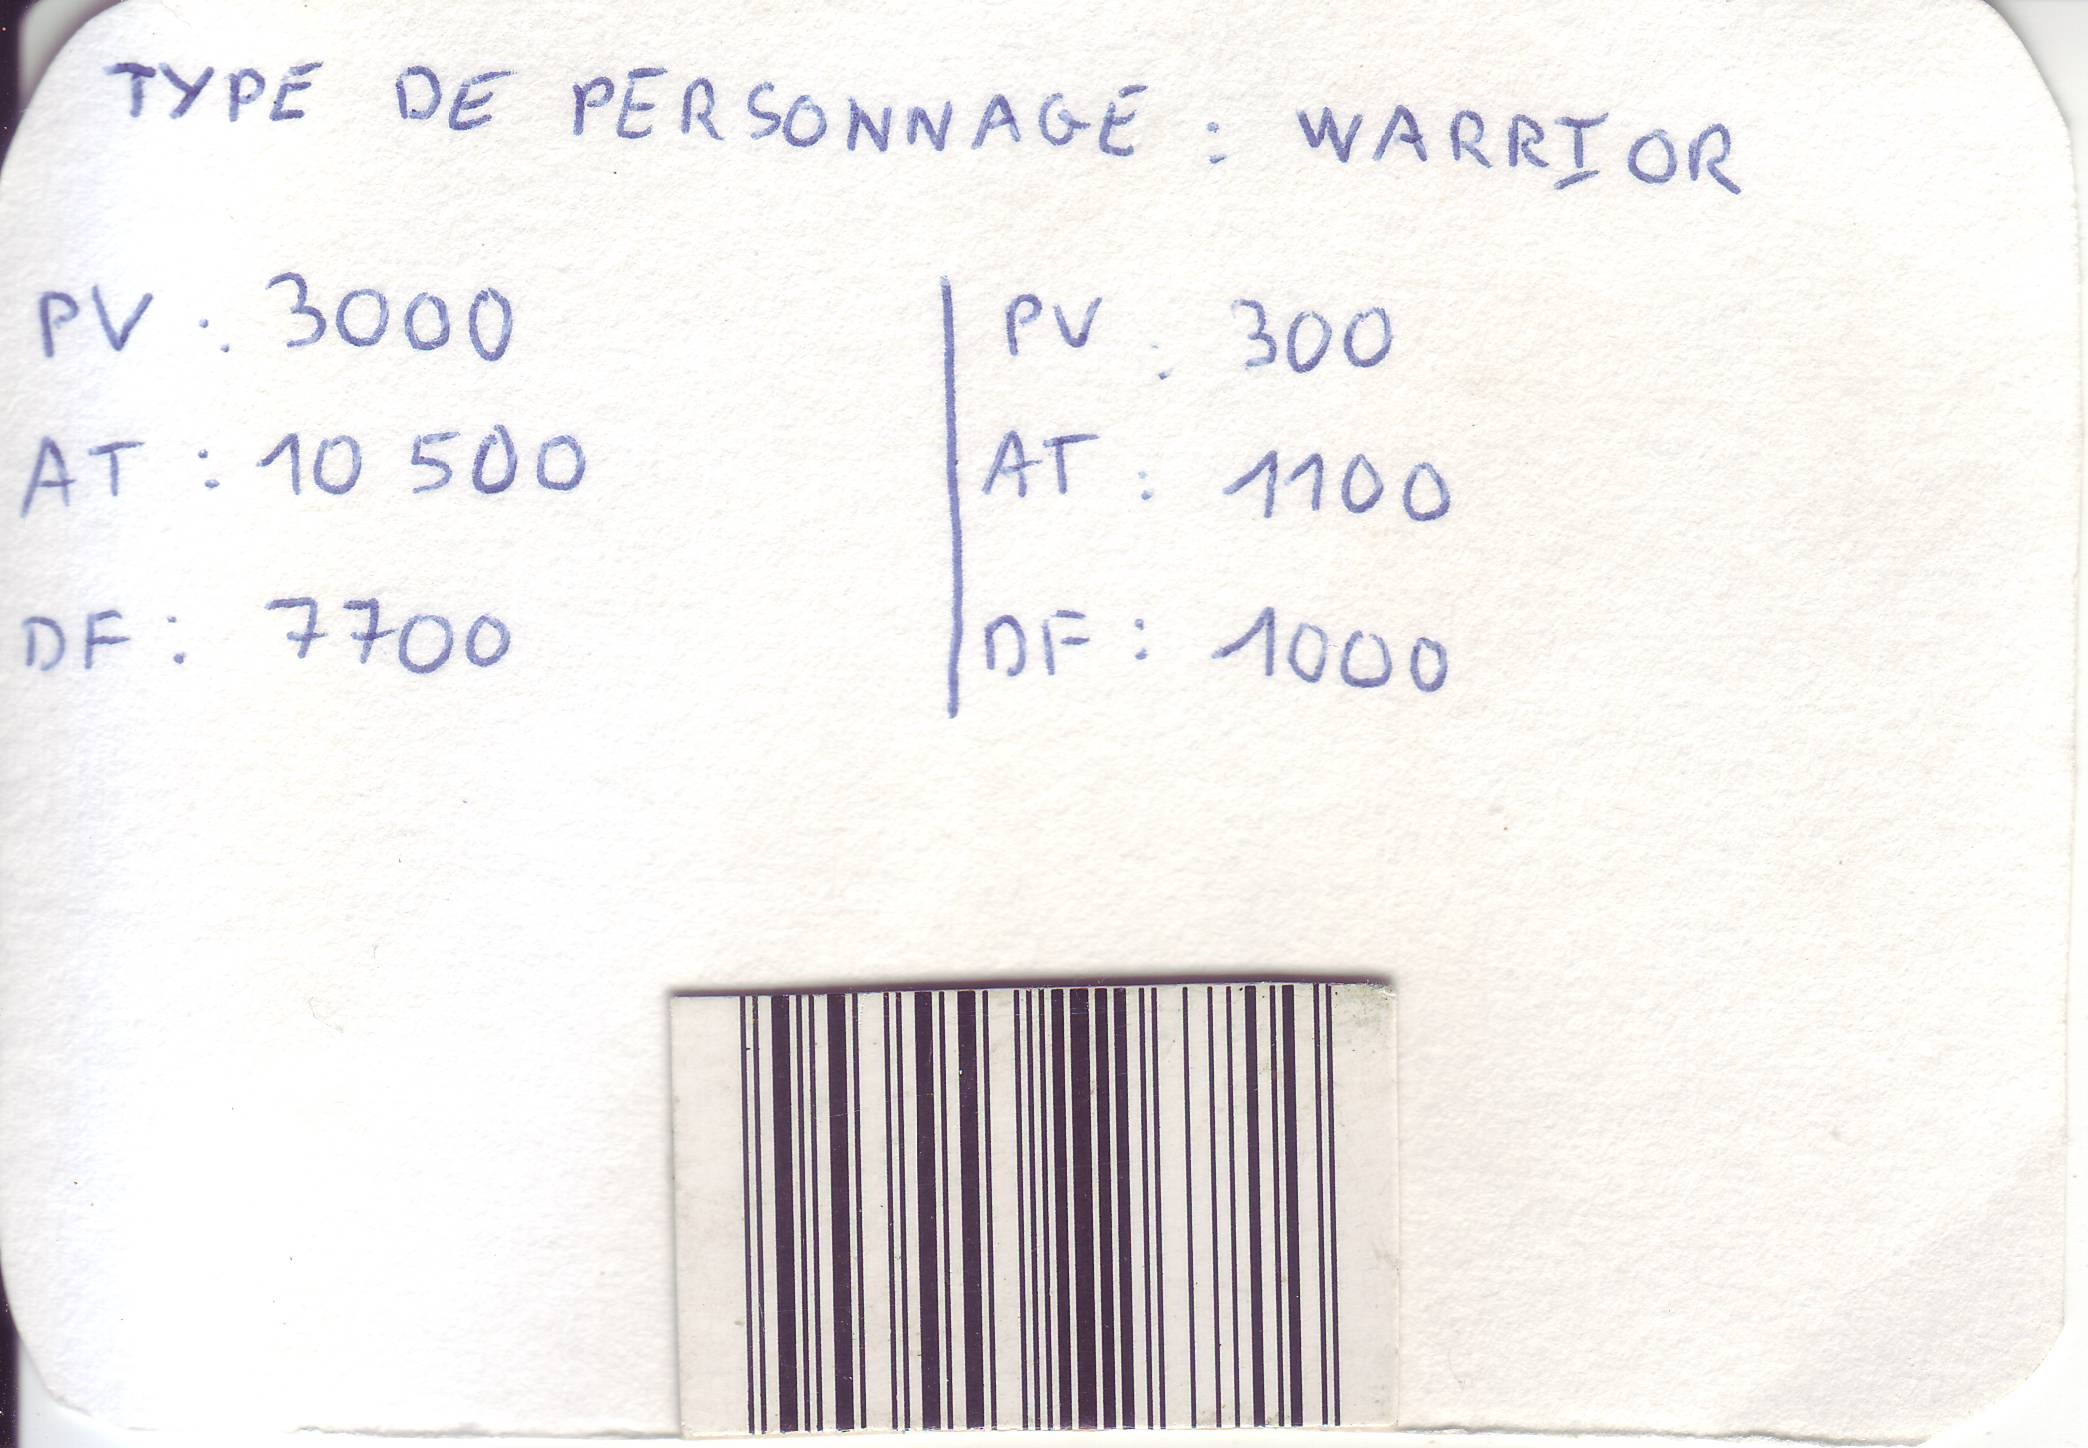 TYPE DE PERSONNAGE : WARRIOR
PV : 3000
AT : 10 500
DF : 7700
PV : 300
AT : 1100
DF : 1000